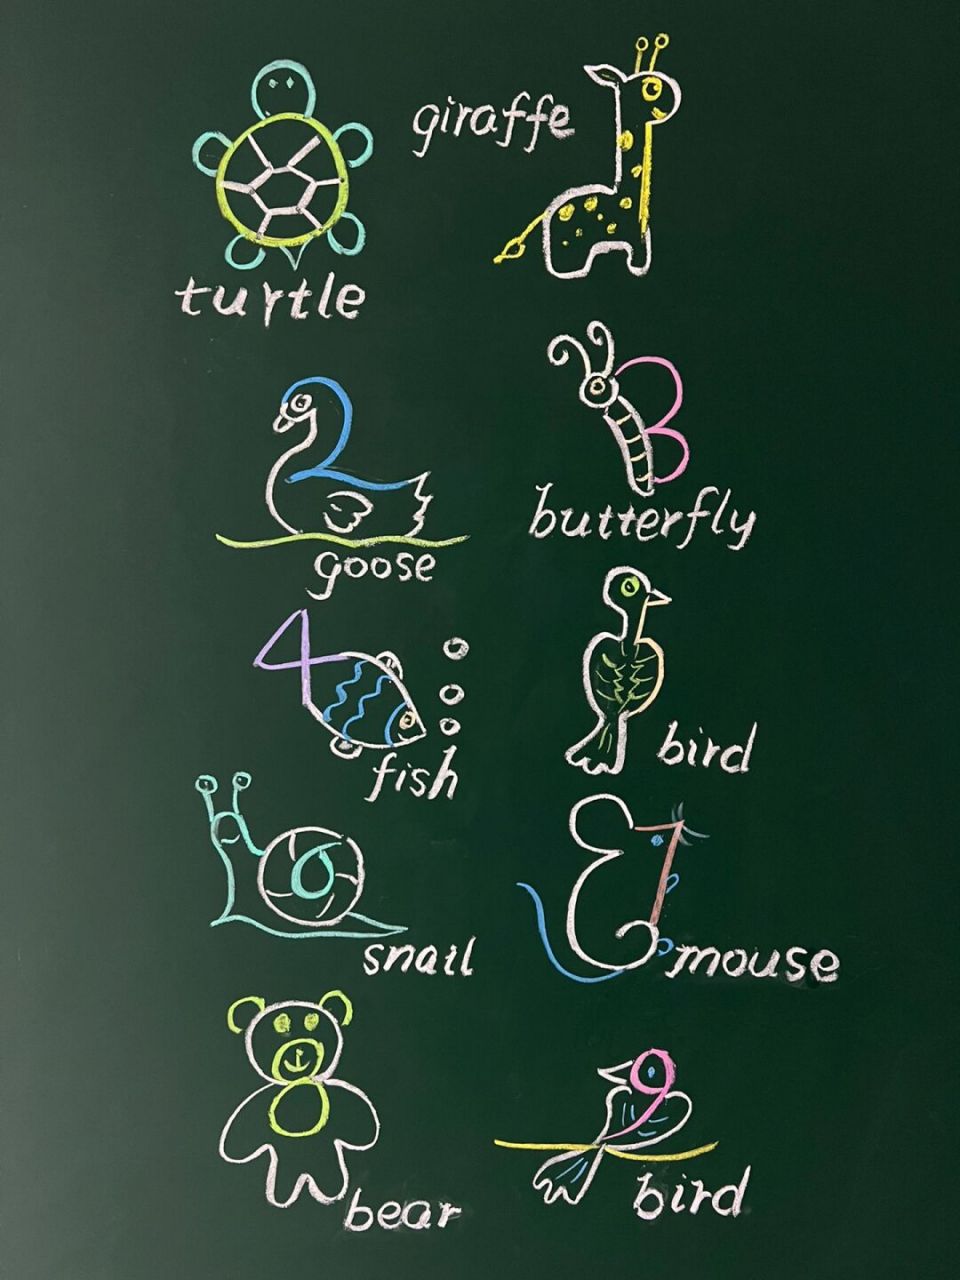 giraffe
turtle
butterfly
goose
bird
fish
snail
mouse
bear
bird